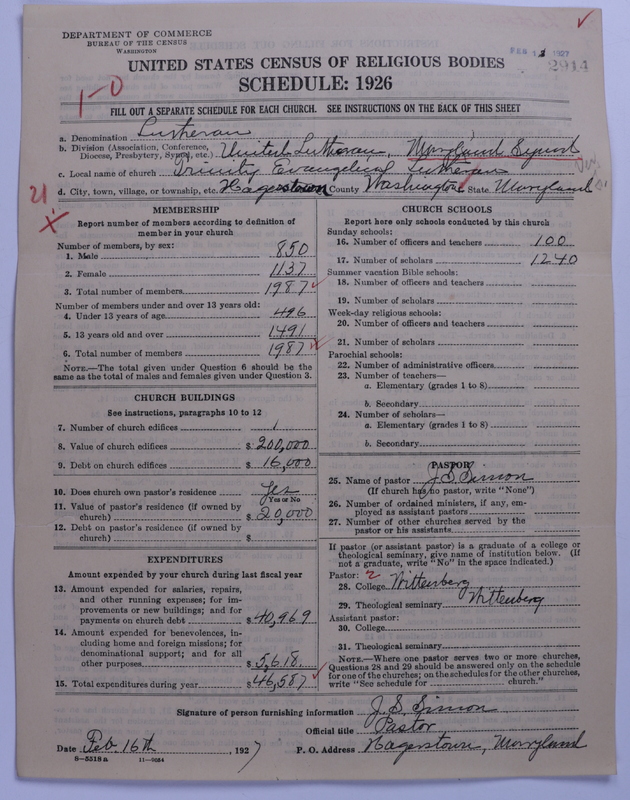 DEPARTMENT OF COMMERCE
BUREAU OF THE CENSUS
WASHINGTON
FEB 1927
2914
UNITED STATES CENSUS OF RELIGIOUS BODIES
SCHEDULE: 1926
1-0
FILL OUT A SEPARATE SCHEDULE FOR EACH CHURCH. SEE INSTRUCTIONS ON THE BACK OF THIS SHEET
a. Denomination Lutheran
b. Division (Association, Conference, Diocese, Presbytery, Synod, etc.) United Lutheran, Maryland Synod
c. Local name of church Trinity Evangelical Lutheran
d. City, town, village, or township, etc. Hagerstown County Washington State Maryland
21
X
MEMBERSHIP
Report number of members according to definition of
member in your church
Number of members, by sex:
1. Male 850
2. Female 1137
3. Total number of members 1987
Number of members under and over 13 years old:
4. Under 13 years of age 496
5. 13 years old and over 1491
6. Total number of members 1987
NOTE.—The total given under Question 6 should be
same as the total of males and females given under Question 3.
CHURCH BUILDINGS
See instructions, paragraphs 10 to 12
7. Number of church edifices 1
8. Value of church edifices $ 200,000
9. Debt on church edifices $ 16,000
10. Does church own pastor's residence Yes
Yes or No
11. Value of pastor's residence (if owned by
church) $ 20,000
12. Debt on pastor's residence (if owned by
church) $
EXPENDITURES
Amount expended by your church during last fiscal year
13. Amount expended for salaries, repairs,
and other running expenses; for im-
provements or new buildings; and for
payments on church debt $ 40,969
14. Amount expended for benevolences, in-
cluding home and foreign missions; for
denominational support; and for all
other purposes $ 5,618.
15. Total expenditures during year $ 46,587
CHURCH SCHOOLS
Report here only schools conducted by this church
Sunday schools:
16. Number of officers and teachers 100
17. Number of scholars 1240
Summer vacation Bible schools:
18. Number of officers and teachers
19. Number of scholars
Week-day religious schools:
20. Number of officers and teachers
21. Number of scholars
Parochial schools:
22. Number of administrative officers
23. Number of teachers—
a. Elementary (grades 1 to 8)
b. Secondary
24. Number of scholars—
a. Elementary (grades 1 to 8)
b. Secondary
PASTOR
25. Name of pastor J. S. Simon
(If church has no pastor, write "None")
26. Number of ordained ministers, if any, em-
ployed as assistant pastors
27. Number of other churches served by the
pastor or his assistants
If pastor (or assistant pastor) is a graduate of a college or
theological seminary, give name of institution below. (If
not a graduate, write "No" in the space indicated.)
Pastor: 2
28. College Wittenberg
29. Theological seminary Wittenberg
Assistant pastor:
30. College
31. Theological seminary
NOTE.—Where one pastor serves two or more churches,
Questions 28 and 29 should be answered only on the schedule
for one of the churches; on the schedules for the other churches,
write "See schedule for church."
Signature of person furnishing information J. S. Simon
Official title Pastor
Date Feb 16th, 1927 P. O. Address Hagerstown, Maryland
8-5318a 11-9054